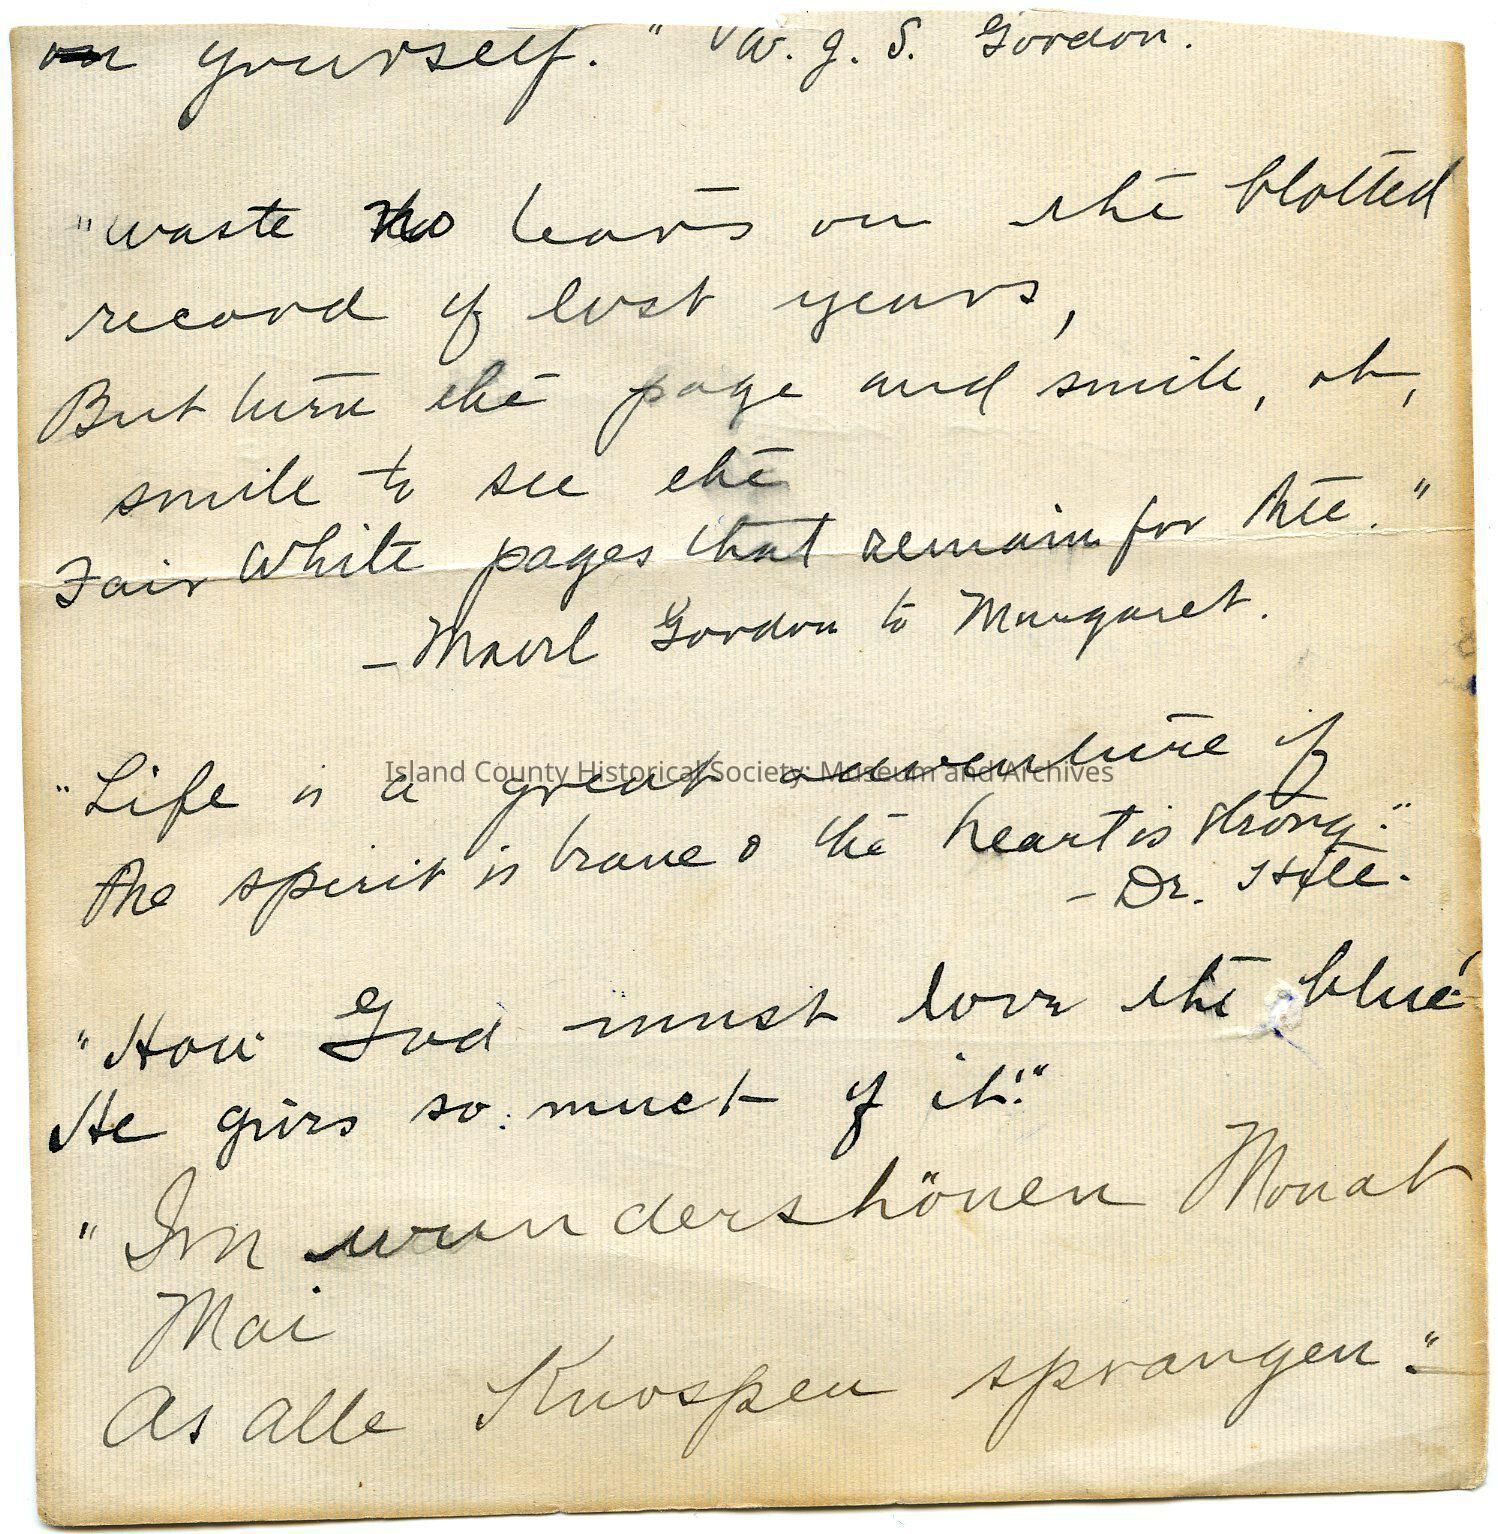 on yourself." W. G. S. Gordon.
"Waste no tears on the blotted
record of lost years,
But turn the page and smile, oh,
smile to see the
Fair white pages that remain for thee."
- Gordon to Margaret.
"Life is a great adventure if
the spirit is brave & the heart is strong."
- Dr.
"How God must love the blue
He gives so much of it!"
"Im wundershönen Monat
Mai
As alle Knospen sprangen."
Island County Historical Society: Museum and Archives